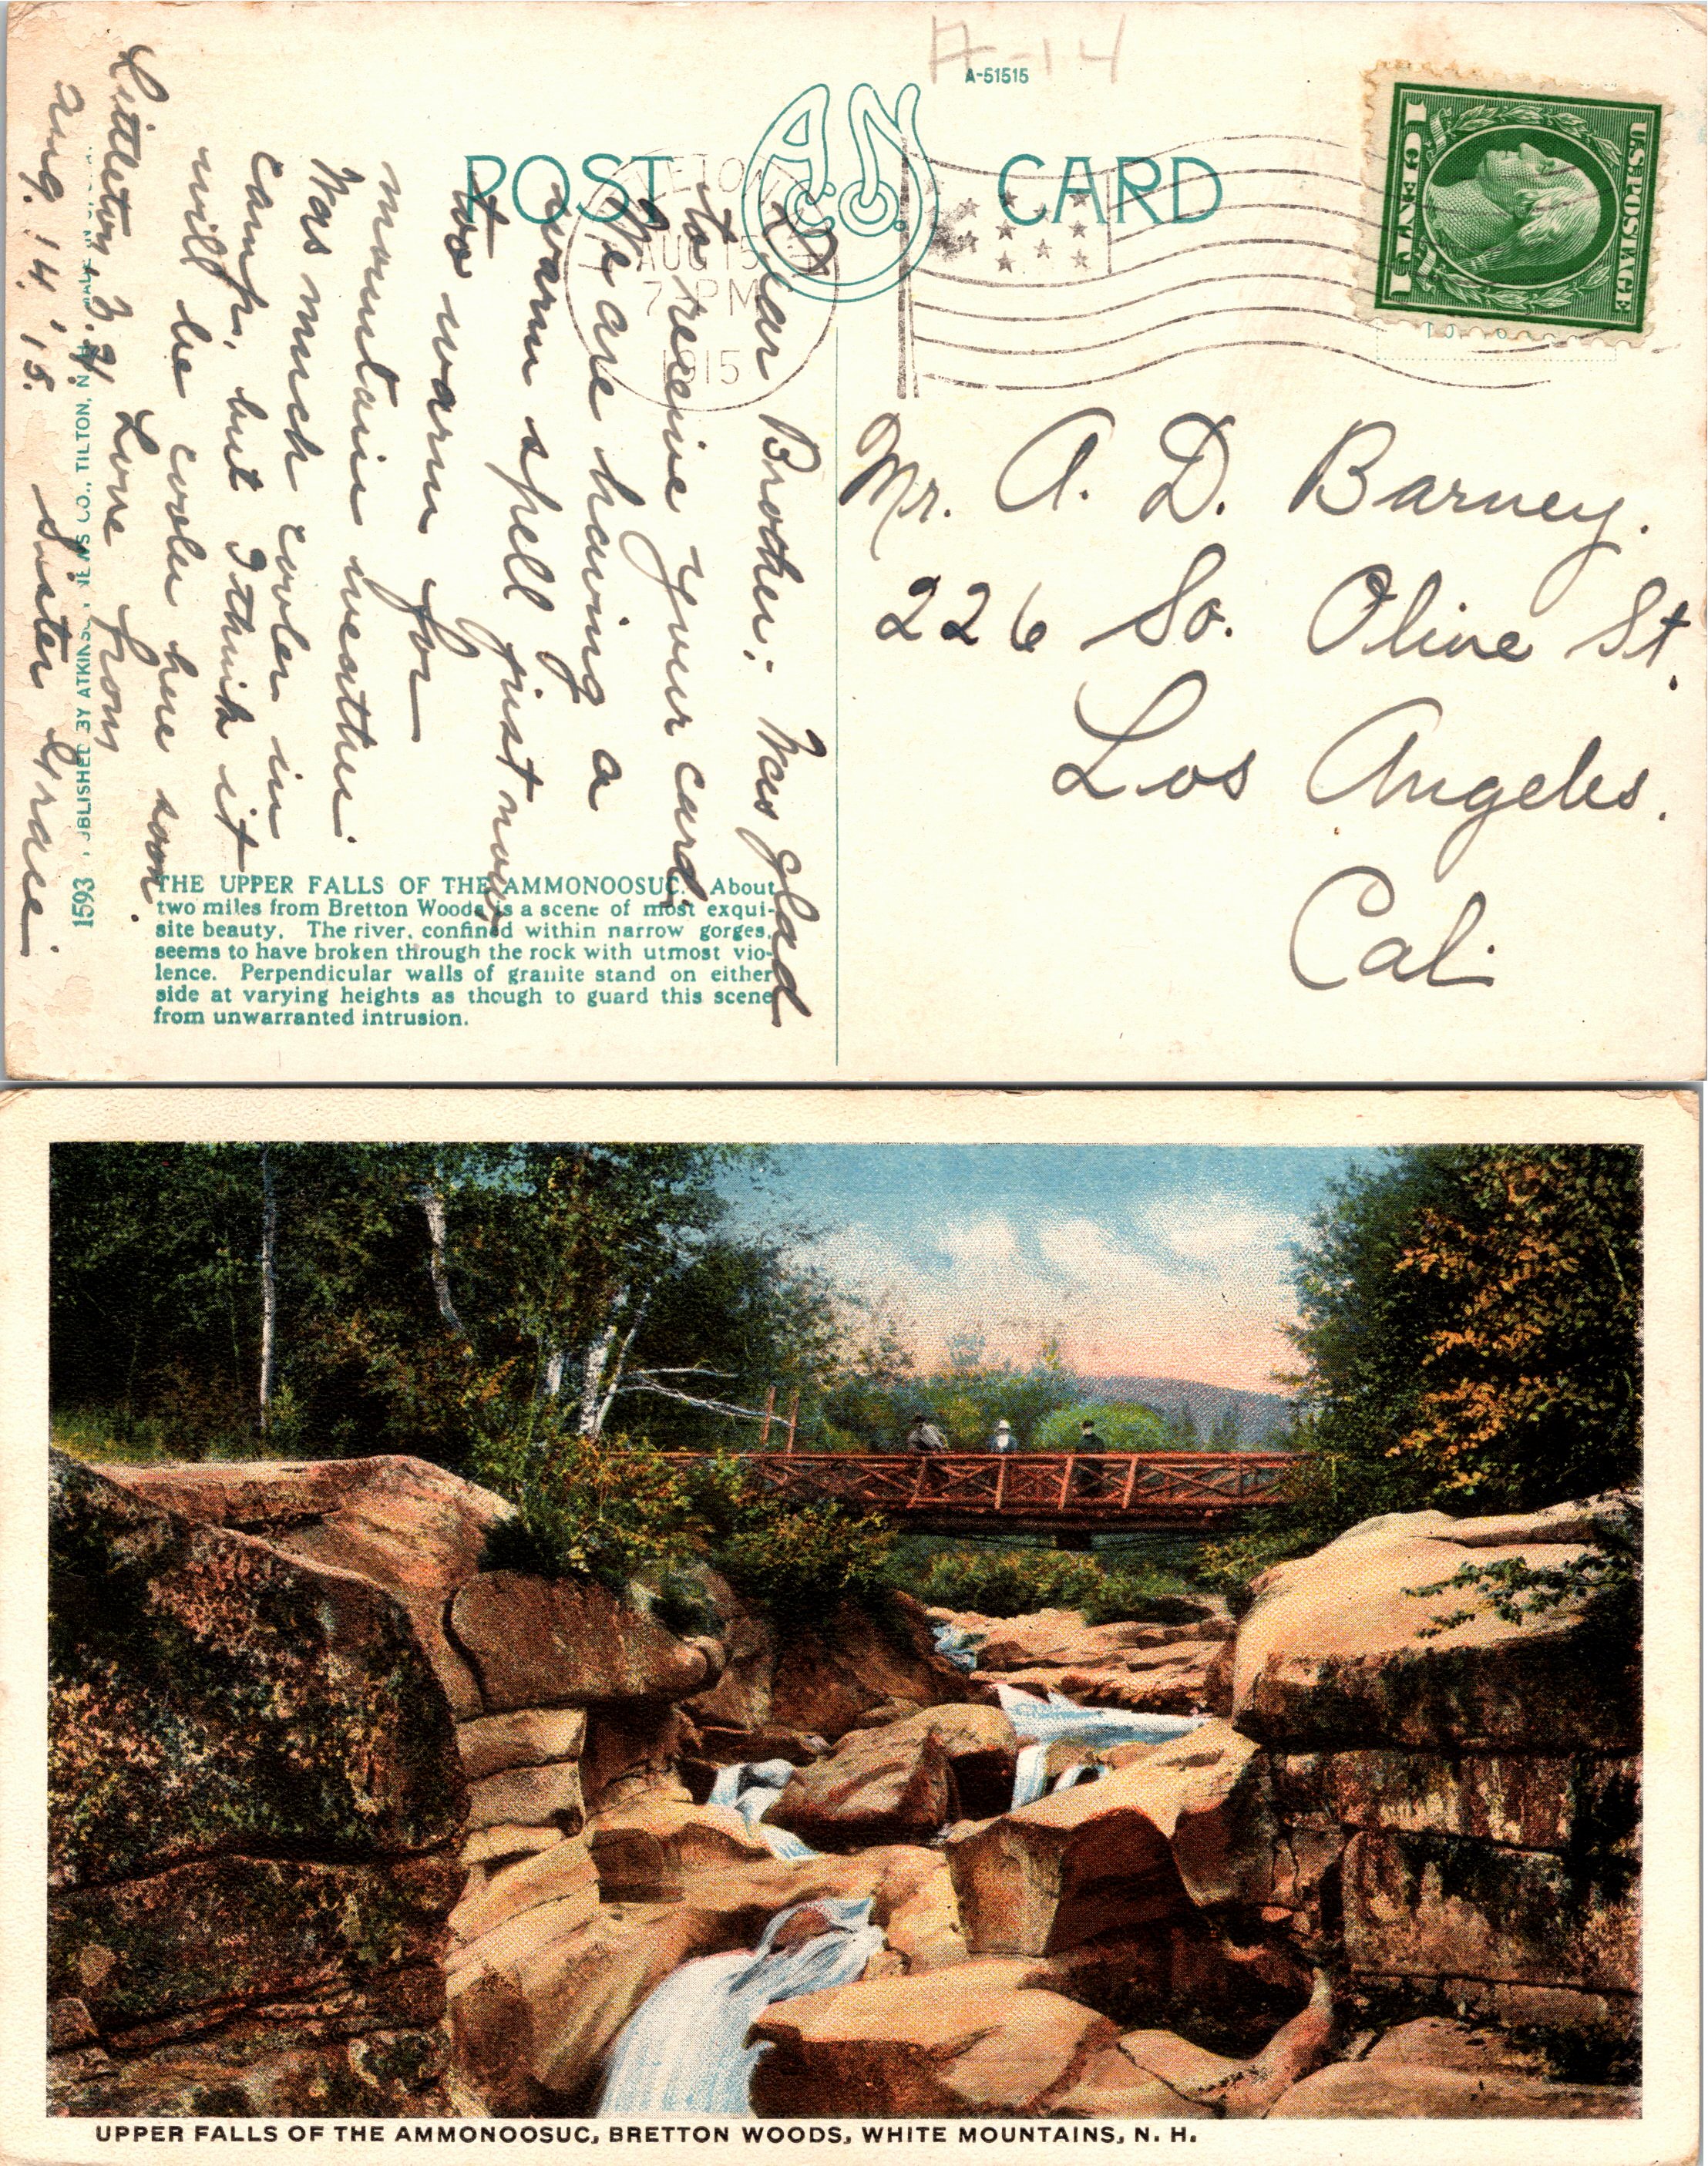 A-14
A-51515
POST CARD
A.N. Co.
U.S. POSTAGE
1 CENT 1
AUG 15
7 PM
1915
Dear Brother: Was glad
to receive your card.
We are having a
warm spell just now,
too warm for
mountain weather.
Was much cooler in
camp, but I think it
will be cooler here soon.
Littleton, N.H. Love from
Aug. 14, '15. Sister Grace.
Mr. A. D. Barney.
226 So. Olive St.
Los Angeles.
Cal.
1593 PUBLISHED BY ATKINSON NEWS CO., TILTON, N.H. MADE IN U.S.A.
THE UPPER FALLS OF THE AMMONOOSUC. About
two miles from Bretton Woods is a scene of most exqui-
site beauty. The river, confined within narrow gorges,
seems to have broken through the rock with utmost vio-
lence. Perpendicular walls of granite stand on either
side at varying heights as though to guard this scene
from unwarranted intrusion.
UPPER FALLS OF THE AMMONOOSUC, BRETTON WOODS, WHITE MOUNTAINS, N. H.